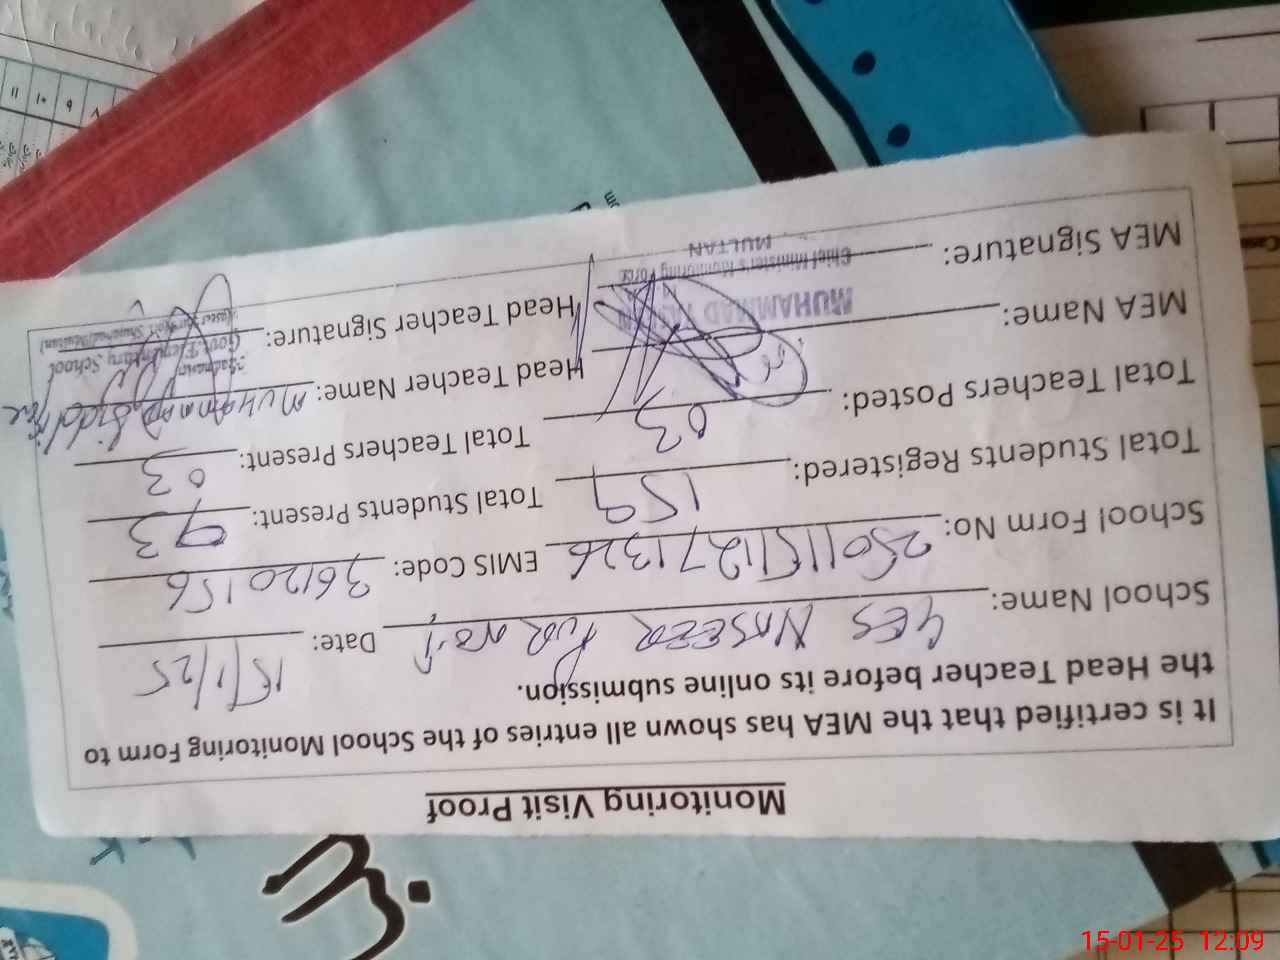 Monitoring Visit Proof
It is certified that the MEA has shown all entries of the School Monitoring Form to
the Head Teacher before its online submission.
School Name: GES NASEER PUR NO.1 Date: 15/1/25
School Form No: 25011511271326 EMIS Code: 36120156
Total Students Registered: 159 Total Students Present: 93
Total Teachers Posted: 03 Total Teachers Present: 03
MEA Name: MUHAMMAD Head Teacher Name: MUHAMMAD Siddique
MEA Signature: Head Teacher Signature:
Chief Minister's Monitoring Force
MULTAN
Headmaster
Govt. Elementary School
15-01-25 12:09